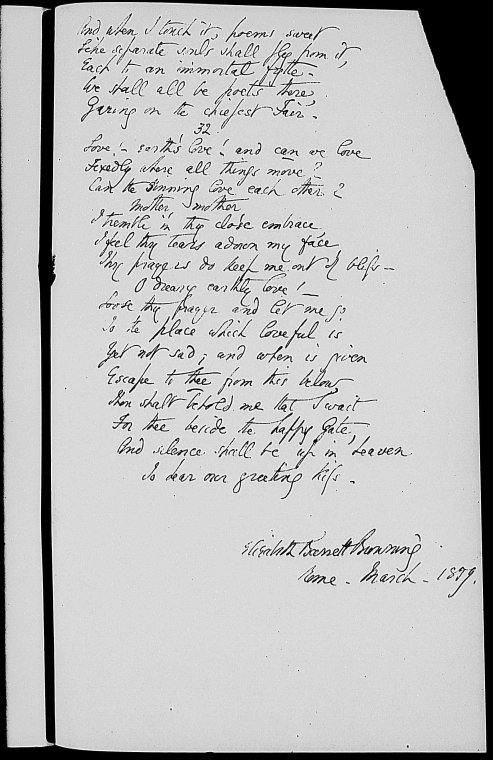 And when I touch it, poems sweet
Like separate souls shall fly from it,
Each to an immortal fytte.
We shall all be poets there,
Gazing on the chiefest Fair.
32
Love! earth's love! and can we love
Fixedly where all things move?
Can the sinning love each other?
Mother, mother
I tremble in thy close embrace,
I feel thy tears adown my face,
Thy prayers do keep me out of bliss—
O dreary earthly love!
Loose thy prayer and let me go
To the place which loveful is
Yet not sad; and when is given
Escape to thee from this below,
Thou shalt behold me that I wait
For thee beside the happy Gate,
And silence shall be up in heaven
To hear our greeting kiss.
Elizabeth Barrett Browning
Rome - March - 1859.